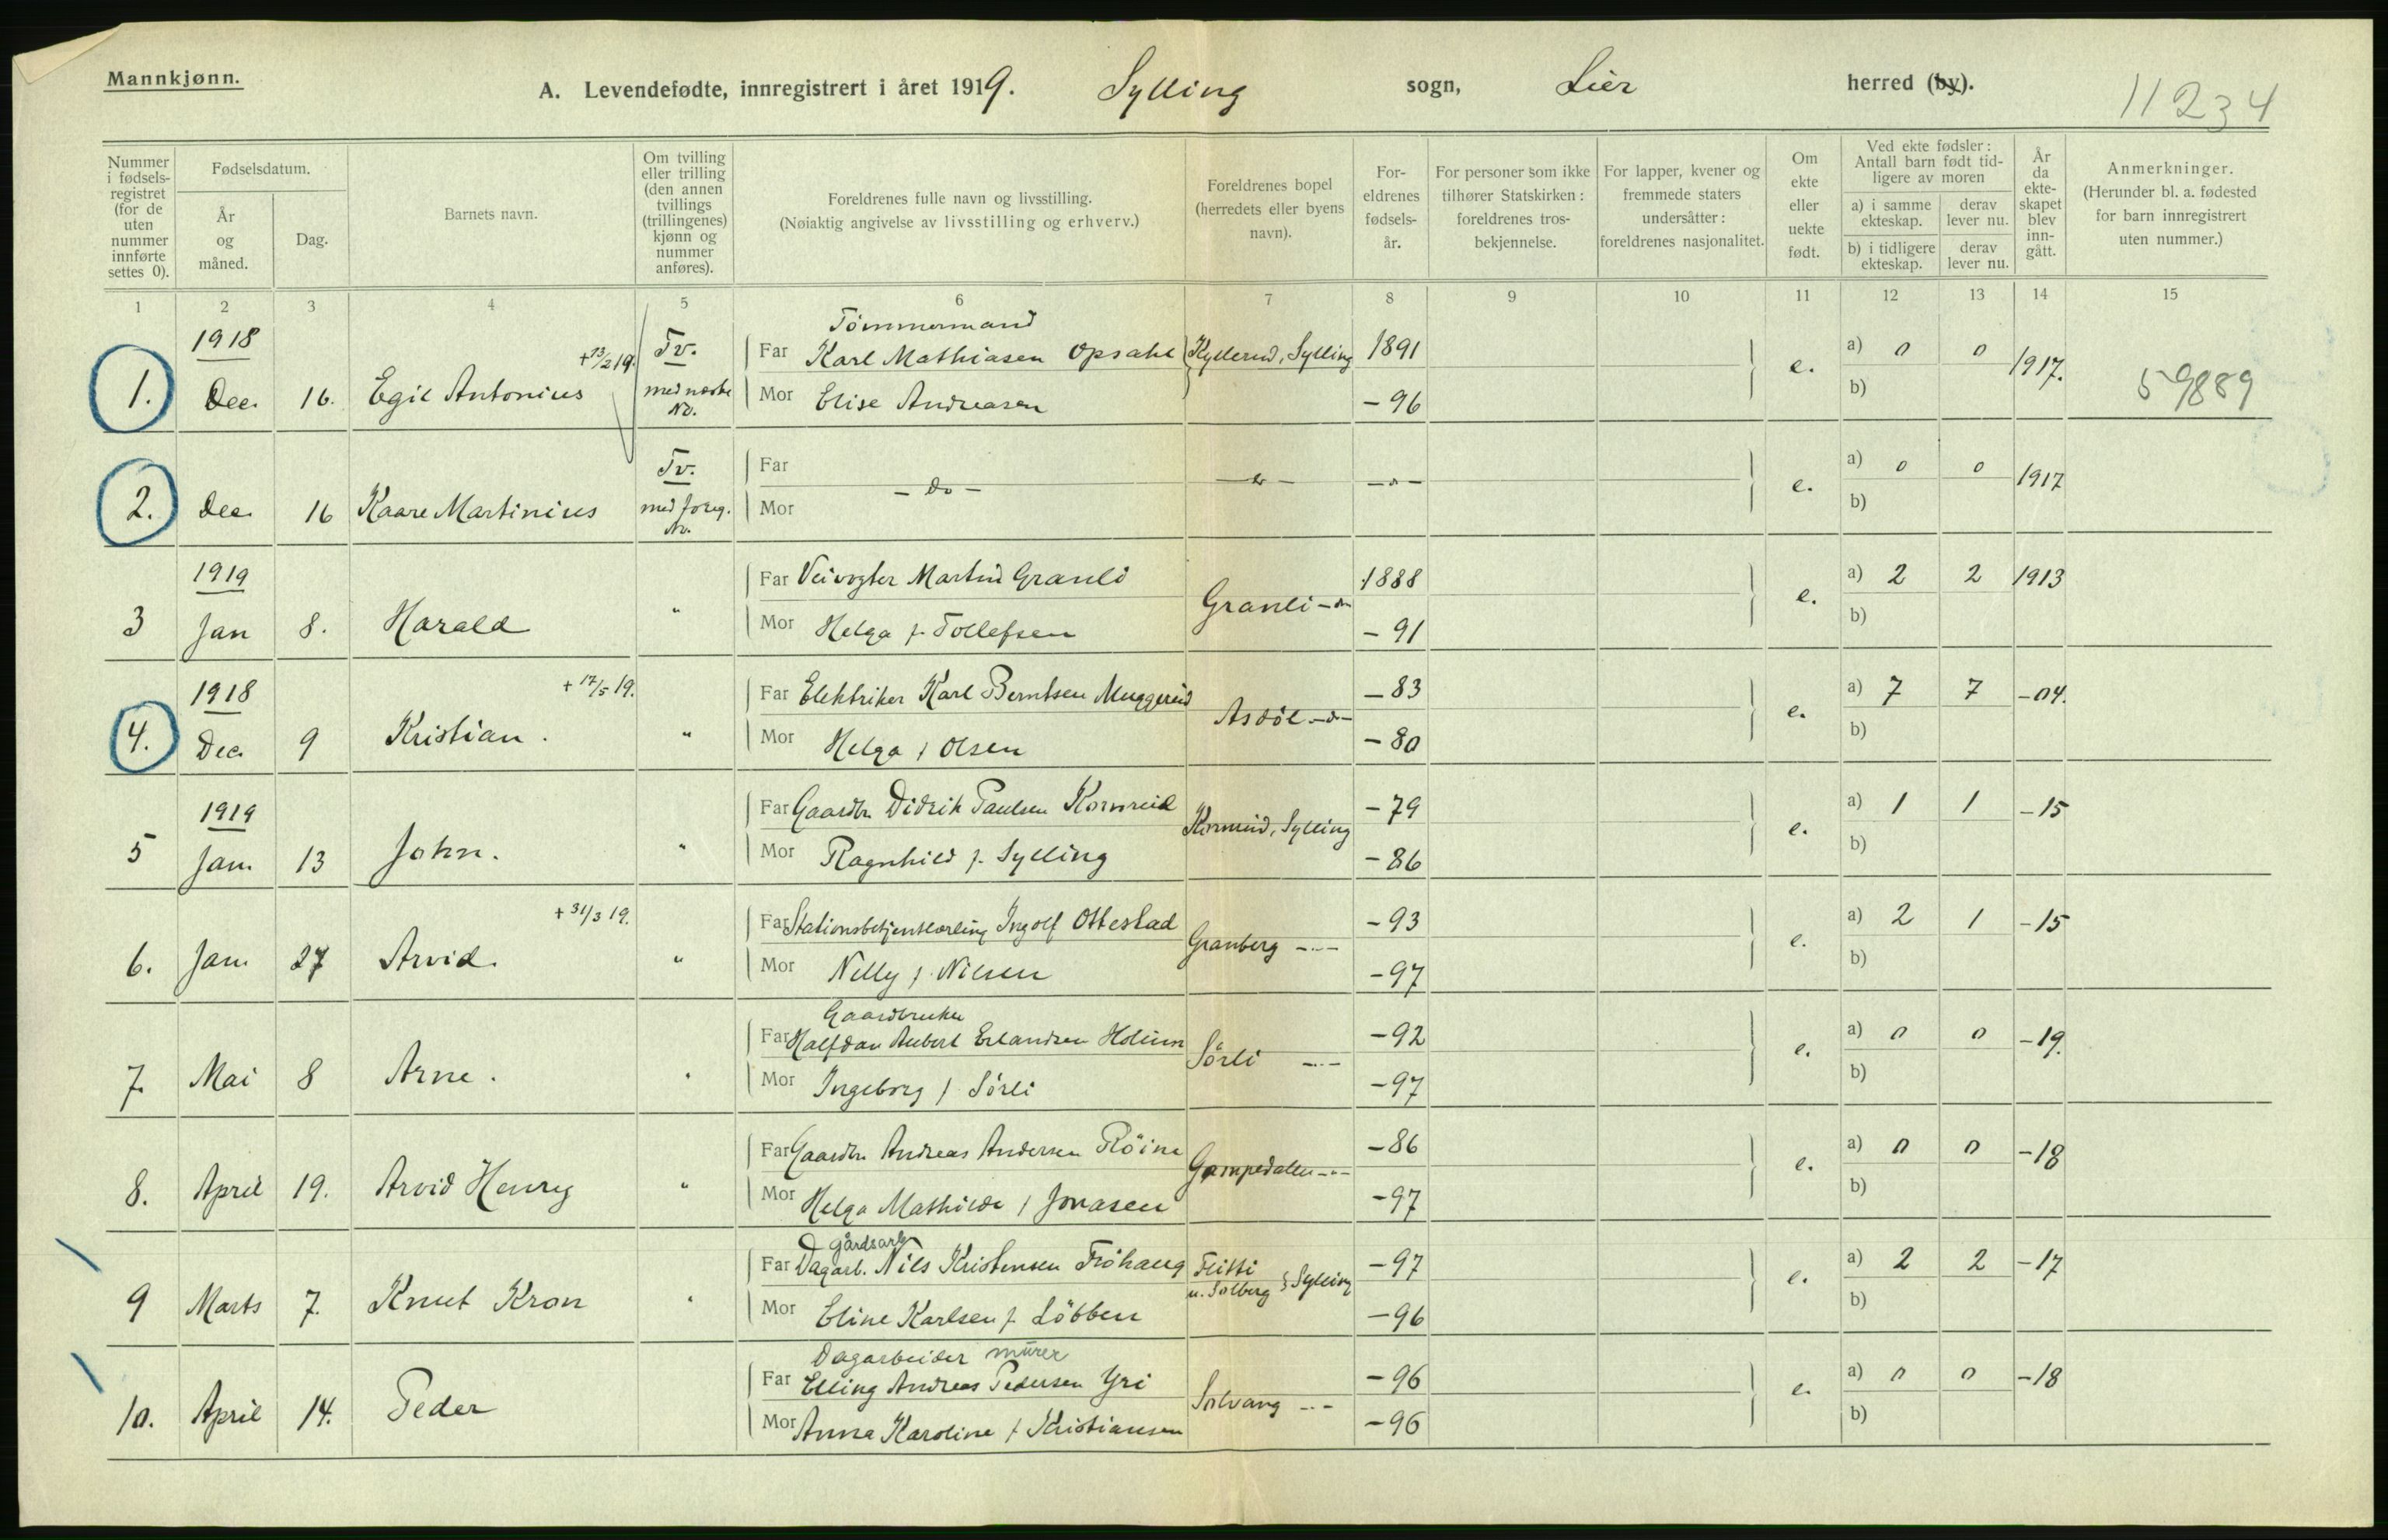 Mannkjønn.
A. Levendefødte, innregistrert i året 1919. Sylling sogn, Lier herred (by).
11234
Nummer i fødselsregistret (for de uten nummer innførte settes 0).
Fødselsdatum.
År og måned.
Dag.
Barnets navn.
Om tvilling eller trilling (den annen tvillings (trillingenes) kjønn og nummer anføres).
Foreldrenes fulle navn og livsstilling.
(Nøiaktig angivelse av livsstilling og erhverv.)
Foreldrenes bopel (herredets eller byens navn).
Foreldrenes fødselsår.
For personer som ikke tilhører Statskirken: foreldrenes trosbekjennelse.
For lapper, kvener og fremmede staters undersåtter: foreldrenes nasjonalitet.
Om ekte eller uekte født.
Ved ekte fødsler: Antall barn født tidligere av moren
a) i samme ekteskap. derav lever nu.
b) i tidligere ekteskap. derav lever nu.
År da ekteskapet blev inngått.
Anmerkninger.
(Herunder bl. a. fødested for barn innregistrert uten nummer.)
1 2 3 4 5 6 7 8 9 10 11 12 13 14 15
1918 Tømmermand
+13/2 19. Tv. Far Karl Mathiasen Opsahl Kyllerud, Sylling 1891 a) 0 0
1. Dec. 16. Egil Antonius med næste No. Mor Elise Andreasen - 96 e. b) 1917. 59889
Tv. Far a) 0 0
2. Dec. 16 Kaare Martinius med foreg. No. - do - e. 1917
Mor b)
1919 Far Veivogter Martin Granli 1888 a) 2 2 1913
3 Jan 8. Harald " Mor Helga f. Tollefsen Granli -do- - 91 e. b)
1918 +17/5 19. Far Elektriker Karl Berntsen Muggerud - 83 a) 7 7 -04.
4. Dec. 9 Kristian. " Mor Helga f. Olsen Asdøl -do- - 80 e. b)
1919 Far Gaardbr. Didrik Paulsen Kornrud Kornrud, Sylling - 79 a) 1 1 -15
5 Jan. 13 John. " Mor Ragnhild f. Sylling - 86 e. b)
+31/3 19. Far Stationsbetjentlærling Ingolf Ottestad Granberg -"- - 93 a) 2 1 -15
6. Jan. 27 Arvid. " Mor Nelly f. Nilsen - 97 e. b)
Gaardbruker
Far Halfdan Aubert Erlandsen Holium Sørli -"- - 92 a) 0 0 -19.
7. Mai 8 Arne. " Mor Ingeborg f. Sørli - 97 e. b)
Far Gaardbr. Andreas Andersen Røine Gampedalen -"- - 86 a) 0 0 -18
8. April 19. Arvid Henry " Mor Helga Mathilde f. Jonasen - 97 e. b)
gårdsarb.
Far Dagarb. Nils Kristensen Frøhaug u. Solberg Sylling - 97 a) 2 2 -17
9 Marts 7. Knut Kron " Mor Eline Karlsen f. Løbben - 96 e. b)
Dagarbeider murer
Far Elling Andreas Pedersen Yri Solvang -"- - 96 a) 0 0 -18
10. April 14. Peder Mor Anna Karoline f. Kristiansen - 96 e. b)